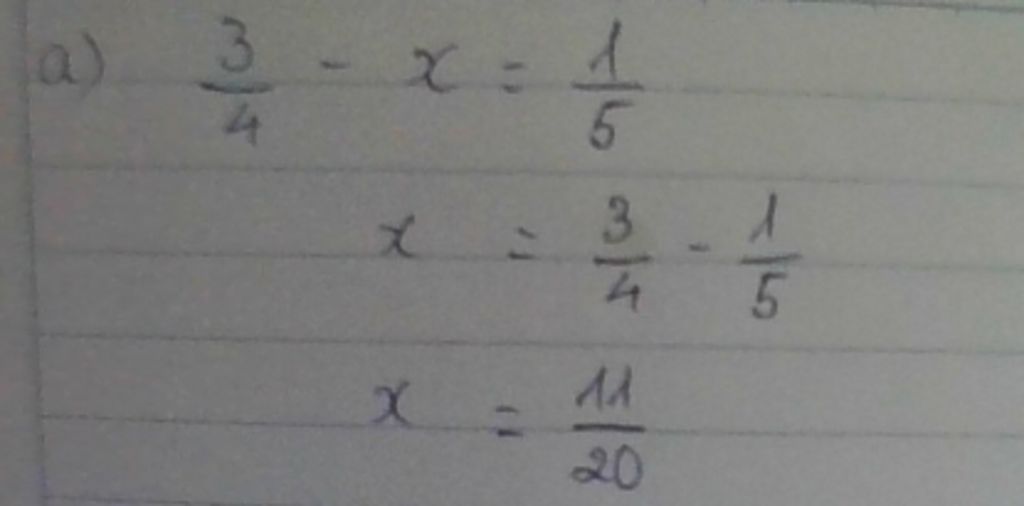 a) 3/4 - x = 1/5
x = 3/4 - 1/5
x = 11/20